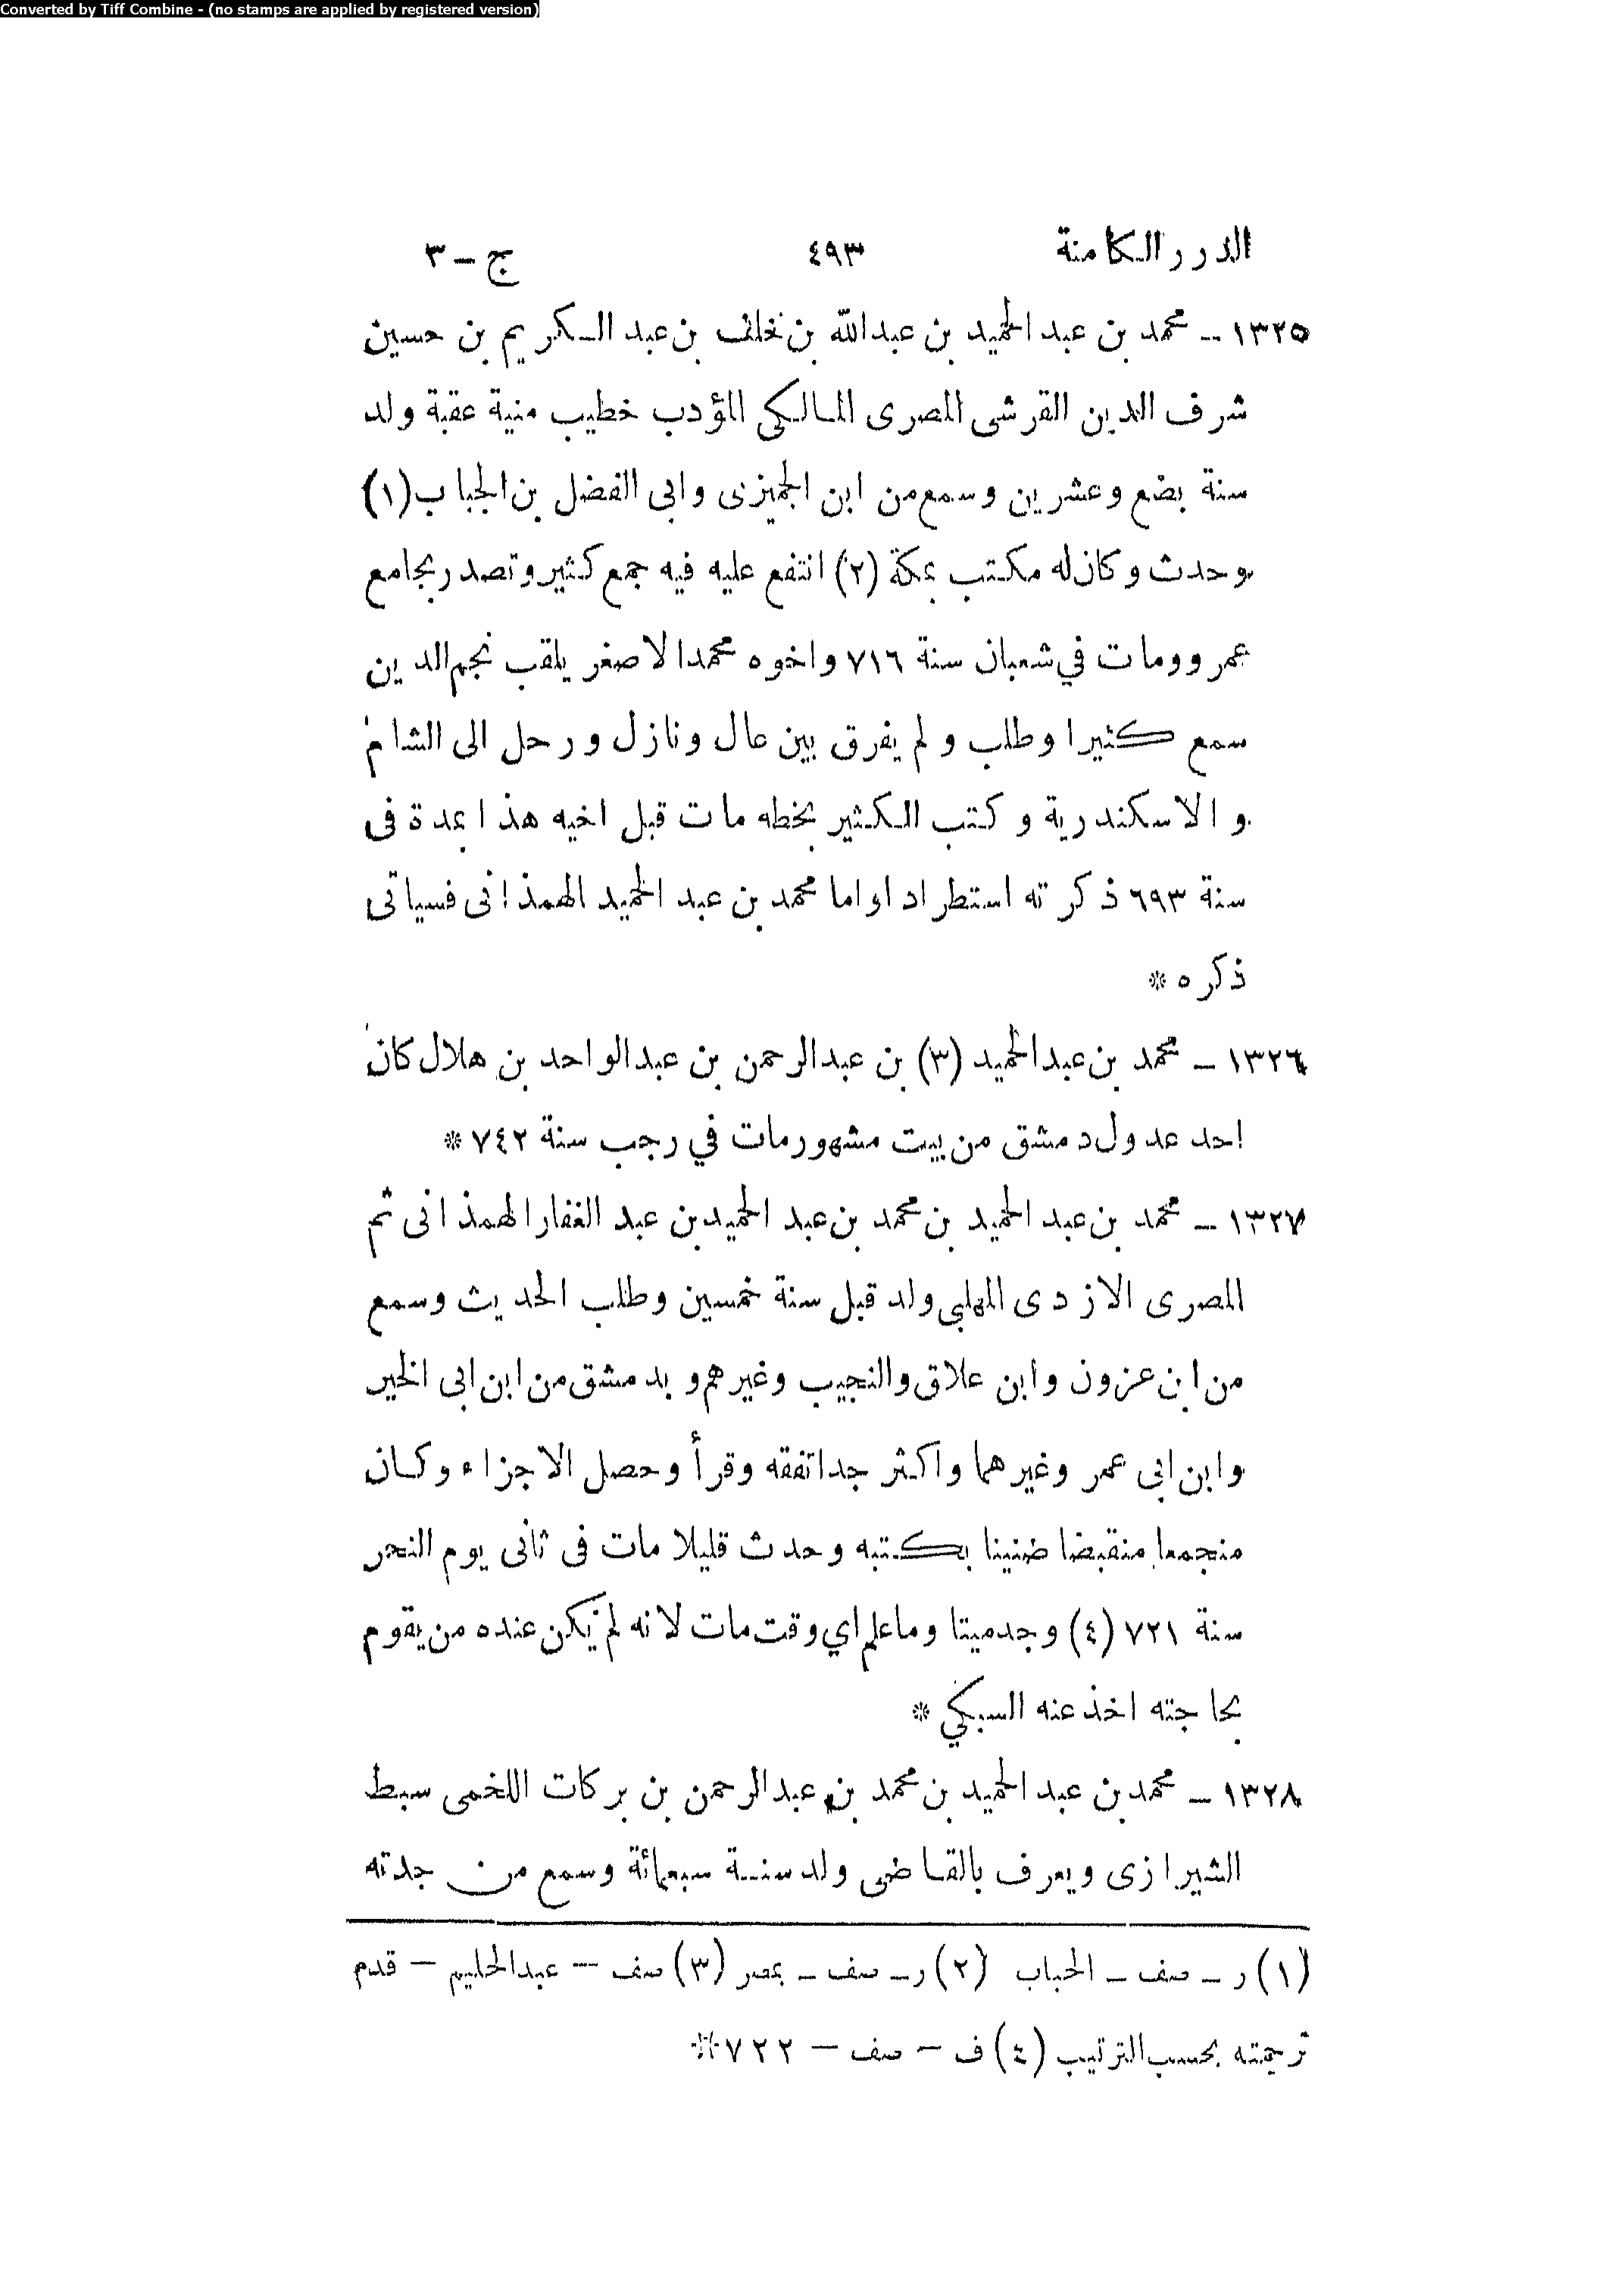 Converted by Tiff Combine - (no stamps are applied by registered version)
الدرر الكامنة ٤٩٣ ج – ٣
١٣٢٥ – محمد بن عبد الحميد بن عبدالله بن خلف بن عبد الكريم بن حسين
شرف الدين القرشى المصرى المالكى المؤدب خطيب منية عقبة ولد
سنة بضع وعشرين وسمع من ابن الجميزى وابى الفضل بن الجباب (١)
وحدث وكان له مكتب بمكة (٢) انتفع عليه فيه جمع كثير وتصدر بجامع
عمرو ومات في شعبان سنة ٧١٦ واخوه محمد الاصغر يلقب نجم الدين
سمع كثيرا وطلب ولم يفرق بين عال ونازل ورحل الى الشام
والاسكندرية وكتب الكثير بخطه مات قبل اخيه هذا بمدة فى
سنة ٦٩٣ ذكرته استطرادا واما محمد بن عبد الحميد الهمذانى فسياتى
ذكره *
١٣٢٦ – محمد بن عبد الحميد (٣) بن عبد الرحمن بن عبد الواحد بن هلال كان
احد عدول دمشق من بيت مشهور مات في رجب سنة ٧٤٢ *
١٣٢٧ – محمد بن عبد الحميد بن محمد بن عبد الحميد بن عبد الغفار الهمذانى ثم
المصرى الازدى المهلبى ولد قبل سنة خمسين وطلب الحديث وسمع
من ابن عزون وابن علاق والنجيب وغيرهم وبدمشق من ابن ابى الخير
وابن ابى عمر وغيرهما واكثر جدا تفقه وقرأ وحصل الاجزاء وكان
منجمعا منقبضا ضنينا بكتبه وحدث قليلا مات فى ثانى يوم النحر
سنة ٧٢١ (٤) وجد ميتا وما علم اي وقت مات لانه لم يكن عنده من يقوم
بحاجته اخذ عنه السبكي *
١٣٢٨ – محمد بن عبد الحميد بن محمد بن عبد الرحمن بن بركات اللخمى سبط
الشيرازى ويعرف بالقاضى ولد سنة سبعمائة وسمع من جدته
(١) ر – صف – الحباب (٢) ر – صف – بمصر (٣) صف – عبد الحليم – قدم
ترجمته بحسب الترتيب (٤) ف – صف – ٧٢٢ *